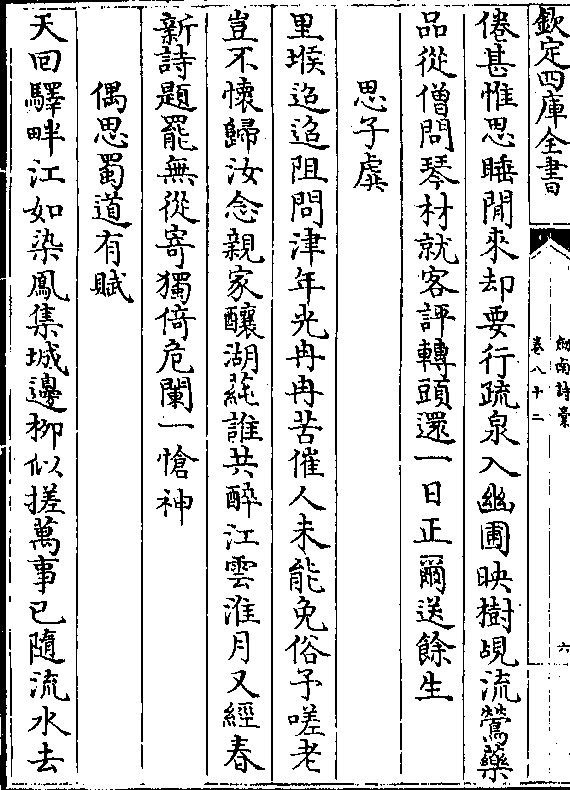 欽定四庫全書
劍南詩稾
卷八十二
六
倦甚惟思睡閒來却要行疏泉入幽圃映樹覘流鶯藥
品從僧問琴材就客評轉頭還一日正爾送餘生
思子虡
里堠迢迢阻問津年光冉冉苦催人未能免俗予嗟老
豈不懷歸汝念親家釀湖蓴誰共醉江雲淮月又經春
新詩題罷無從寄獨倚危闌一愴神
偶思蜀道有賦
天回驛畔江如染鳳集城邊柳似搓萬事已隨流水去